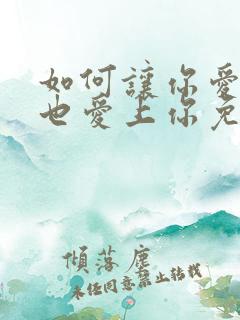 如何讓你愛
也愛上你免
傾落塵
未任同意禁止转载